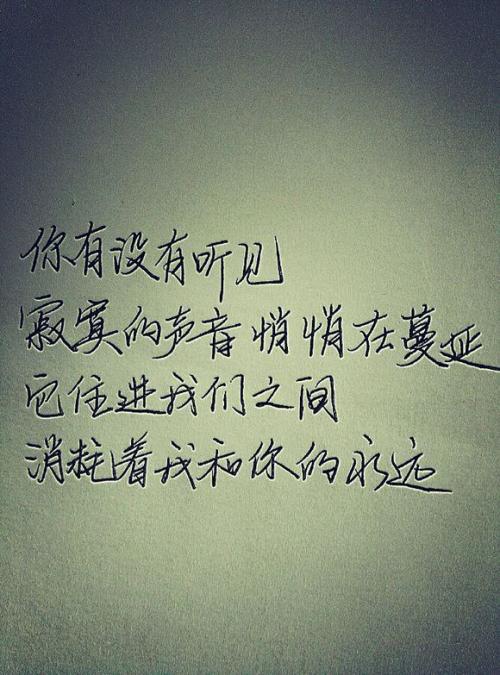 你有没有听见
寂寞的声音悄悄在蔓延
它住进我们之间
消耗着我和你的永远